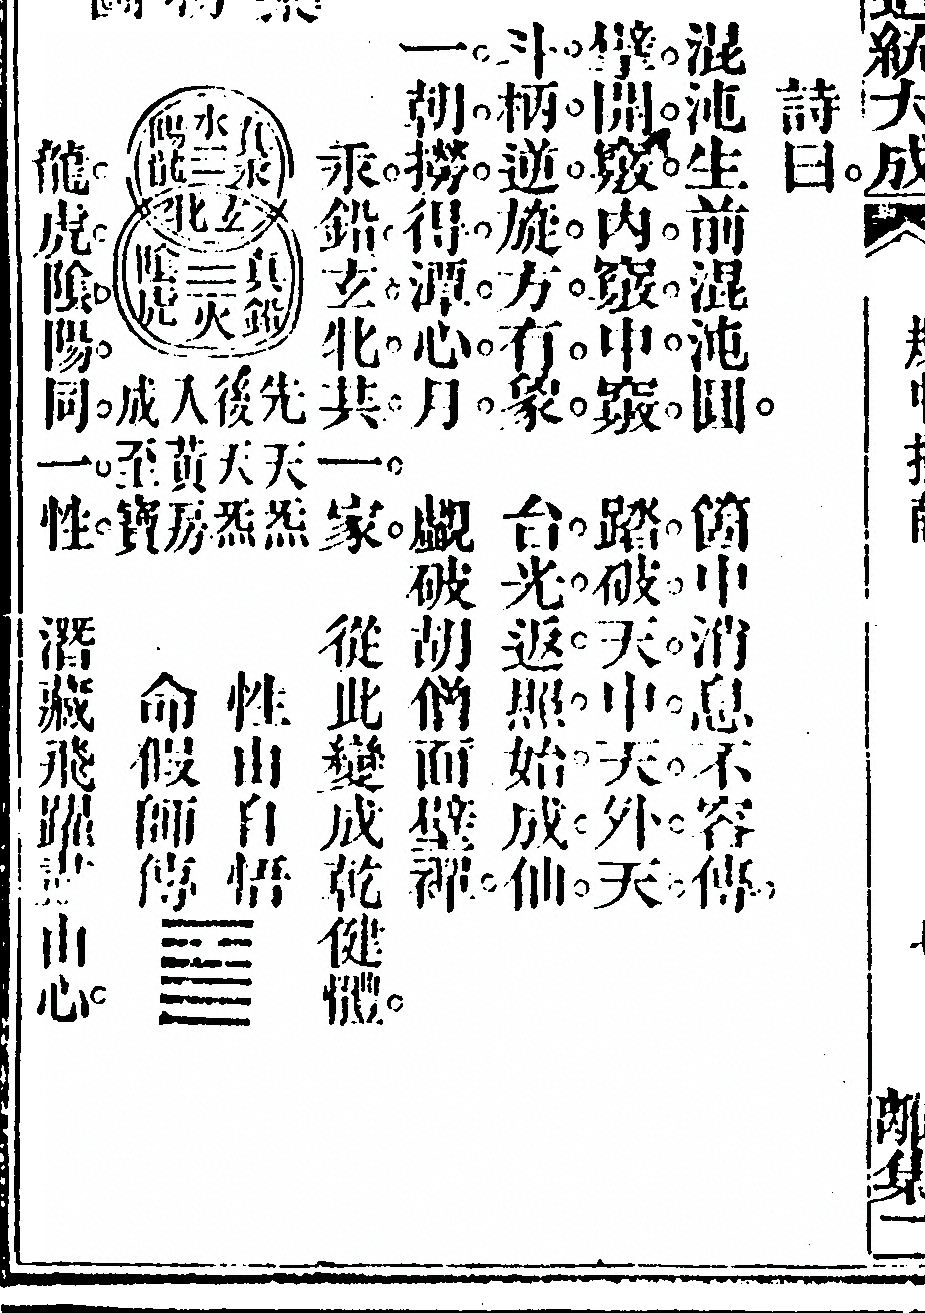 道統大成
規中指
離集二
詩曰。
混沌生前混沌圓。箇中消息不容傳。
擘開竅內竅中竅。踏破天中天外天
斗柄逆旋方有象。台光返照始成仙
一朝撈得潭心月。覷破胡僧面壁禪。
汞鉛玄牝共一家。從此變成乾健體。
真汞
水
陽龍
玄牝
真鉛
火
陰虎
先天炁
後天炁
入黃房
成至寶
性由自悟
命假師傳
龍虎陰陽同一性。潛藏飛躍盡由心。